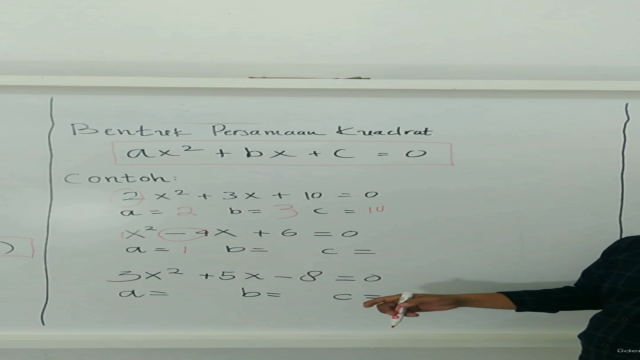 Bentuk Persamaan Kuadrat
ax² + bx + c = 0
Contoh:
2x² + 3x + 10 = 0
a = 2 b = 3 c = 10
1x² - 4x + 6 = 0
a = 1 b = c =
3x² + 5x - 8 = 0
a = b = c =
)